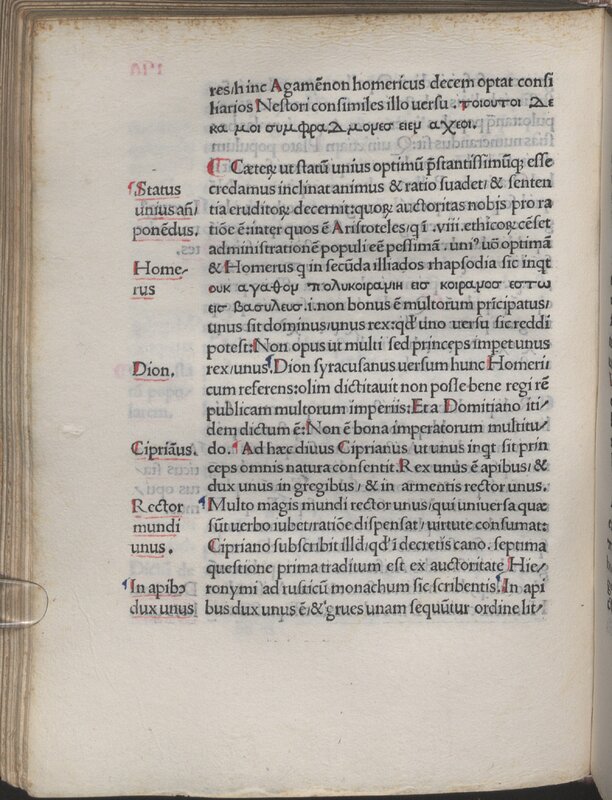 res/hinc Agamēnon homericus decem optat consi
liarios Nestori consimiles illo uersu. τοιουτοι Δε
κα μοι συμφραΔμονες ειεν αχεοι.
Cæteꝝ ut statū unius optimū p̄stantissimūqꝫ esse
credamus inclinat animus & ratio suadet/& senten
tia eruditoꝝ decernit:quoꝝ auctoritas nobis pro ra
tiōe ē:inter quos ē Aristoteles/q ī .viii. ethicoꝝ cēset
administrationē populi eē pessimā. uniꝰ uō optimā
& Homerus q in secūda illiados rhapsodia sic inqt
ουκ αγαθον πολυκοιρανιη εις κοιρανος εστω
εις βασυλευς.i.non bonus ē multorum prīcipatus/
unus sit dominus/unus rex:qd' uno uersu sic reddi
potest:Non opus ut multi sed princeps impet unus
rex/unus. Dion syracusanus uersum hunc Homeri/
cum referens:olim dictitauit non posse bene regi rē
publicam multorum imperiis:Et a Domitiano iti/
dem dictum ē:Non ē bona imperatorum multitu/
do. Ad hæc diuus Ciprianus/ut unus inqt sit prin
ceps omnis natura consentit.Rex unus ē apibus/&
dux unus in gregibus/& in armentis rector unus.
Multo magis mundi rector unus/qui uniuersa quæ
sūt uerbo iubet/ratiōe dispensat/uirtute consumat:
Cipriano subscribit illd/qd' ī decretis cano. septima
questione prima traditum est ex auctoritate Hie/
ronymi ad rusticū monachum sic scribentis.In api
bus dux unus ē/& grues unam sequūtur ordine lit/
Status
unius añ/
ponēdus.
Home/
rus
Dion.
Cipriāus.
Rector
mundi
unus.
In apibꝰ
dux unus